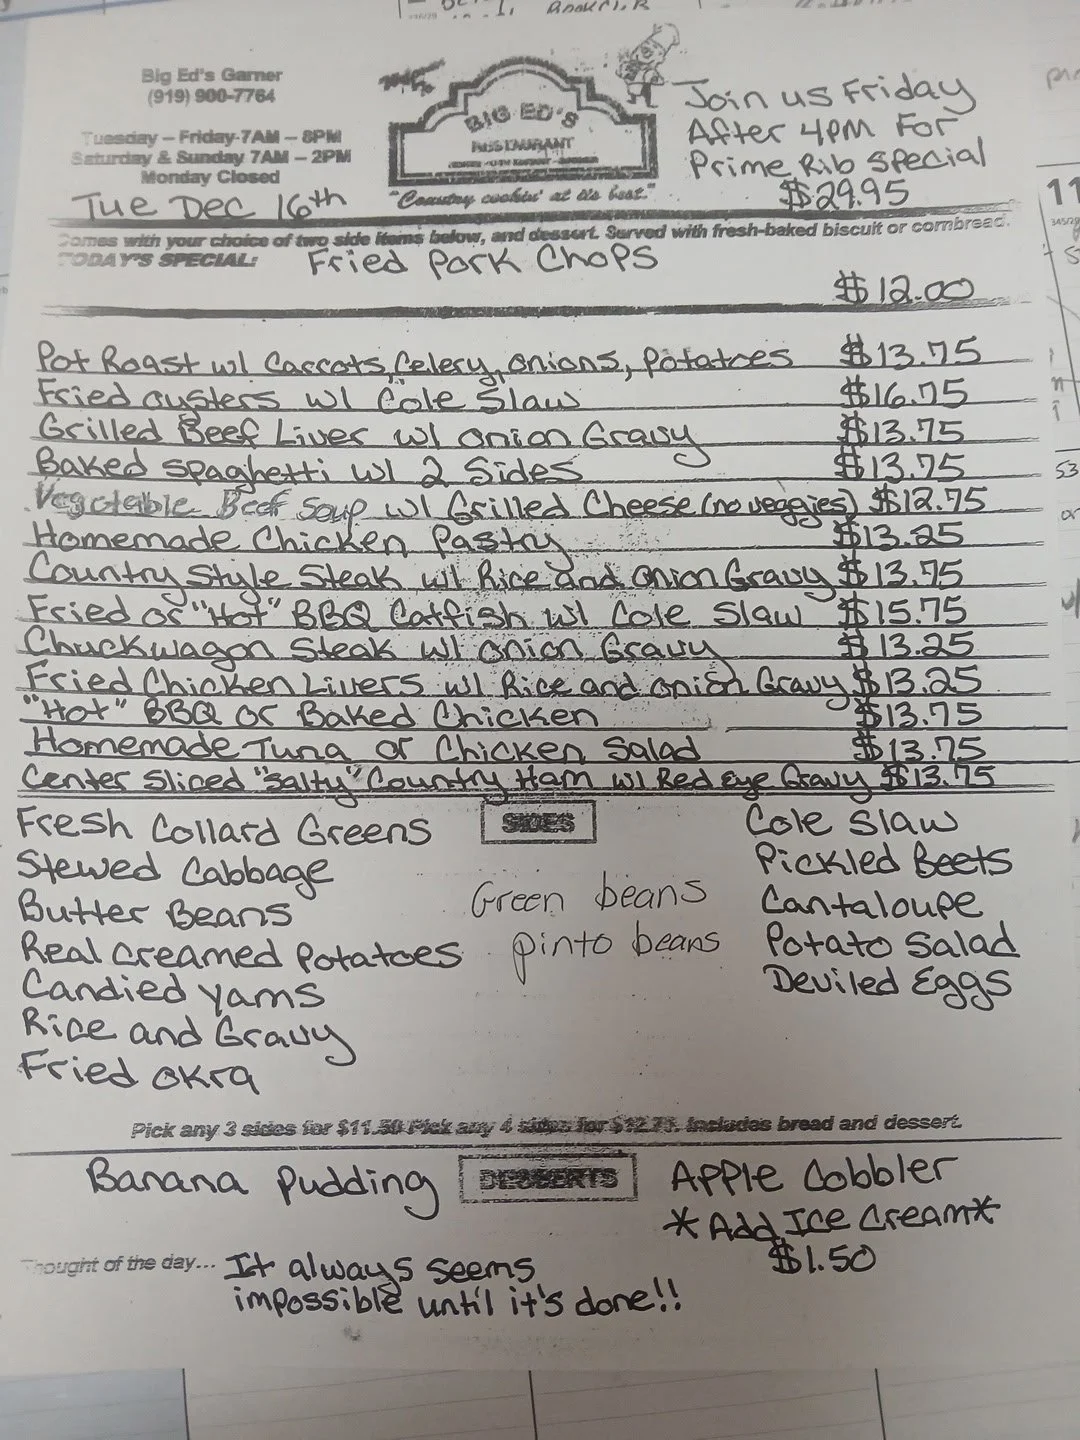 Big Ed's Garner
(919) 900-7764
Tuesday – Friday-7AM – 8PM
Saturday & Sunday 7AM – 2PM
Monday Closed
Tue Dec 16th
BIG ED'S
RESTAURANT
"Country cookin' at its best."
Join us Friday
After 4PM For
Prime Rib Special
$29.95
Comes with your choice of two side items below, and dessert. Served with fresh-baked biscuit or cornbread.
TODAY'S SPECIAL: Fried Pork Chops
$12.00
Pot Roast w/ Carrots, Celery, onions, potatoes $13.75
Fried oysters w/ Cole Slaw $16.75
Grilled Beef Liver w/ onion Gravy $13.75
Baked Spaghetti w/ 2 Sides $13.75
Vegetable Beef Soup w/ Grilled Cheese (no veggies) $12.75
Homemade Chicken Pastry $13.25
Country Style Steak w/ Rice and onion Gravy $13.75
Fried or "Hot" BBQ Catfish w/ Cole Slaw $15.75
Chuckwagon Steak w/ onion Gravy $13.25
Fried Chicken Livers w/ Rice and onion Gravy $13.25
"Hot" BBQ or Baked Chicken $13.75
Homemade Tuna or Chicken Salad $13.75
Center Sliced "Salty" Country Ham w/ Red Eye Gravy $13.75
SIDES
Fresh Collard Greens
Stewed Cabbage
Butter Beans
Real Creamed Potatoes
Candied Yams
Rice and Gravy
Fried okra
Green beans
pinto beans
Cole Slaw
Pickled Beets
Cantaloupe
Potato Salad
Deviled Eggs
Pick any 3 sides for $11.50 Pick any 4 sides for $12.75. Includes bread and dessert.
DESSERTS
Banana Pudding
Apple Cobbler
*Add Ice Cream*
$1.50
Thought of the day... It always seems
impossible until it's done!!